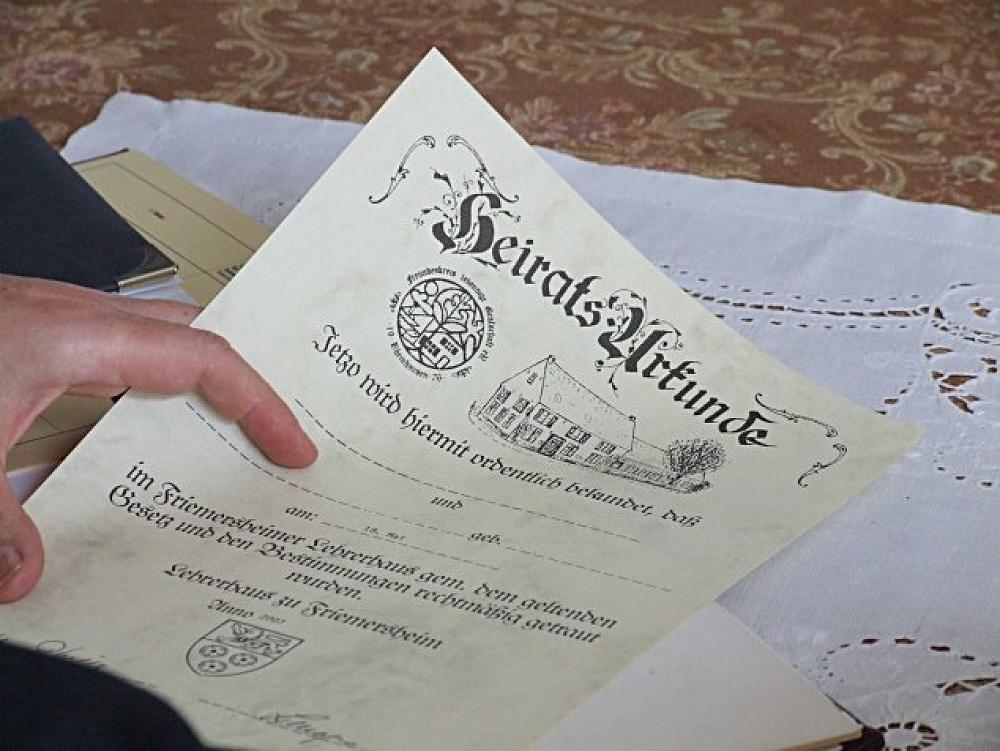 Heirats-Urkunde
Jetzo wird hiermit ordentlich bekundet, daß
und
geb.
am:
im Friemersheimer Lehrerhaus gem. dem geltenden
Gesetz und den Bestimmungen rechtmäßig getraut
wurden.
Lehrerhaus zu Friemersheim
Anno 2007